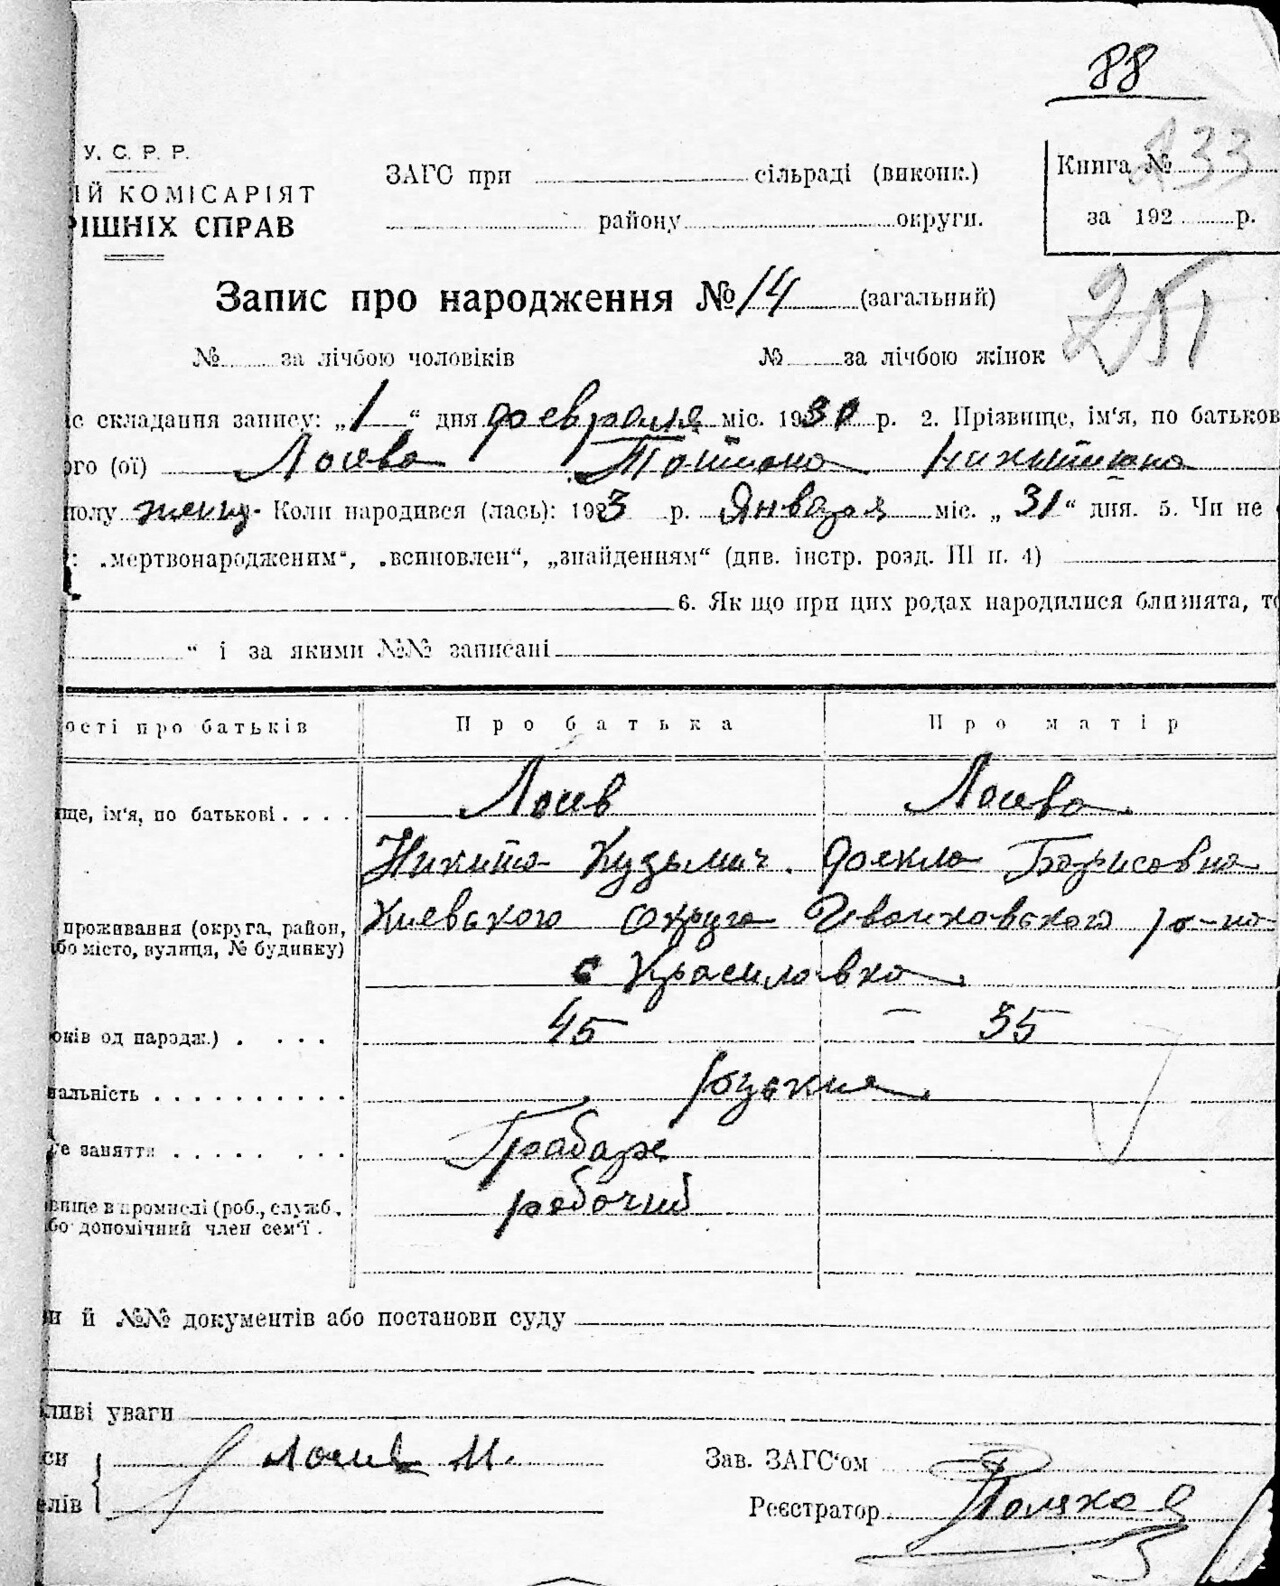 88
У. С. Р. Р.
ИЙ КОМІСАРІЯТ
РІШНІХ СПРАВ
ЗАГС при сільраді (виконк.)
району округи.
Книга № 233
за 192 р.
Запис про народження № 14 (загальний)
251
№ за лічбою чоловіків № за лічбою жінок
с складання запису: „1“ дня февраля міс. 1930 р. 2. Прізвище, ім'я, по батьков
ого (ої) Лосева Татиана Никитична
полу женск. Коли народився (лась): 1923 р. Января міс. „31“ дня. 5. Чи не
: „мертвонародженим“, „всиновлен“, „знайденням“ (див. інстр. розд. III п. 4)
6. Як що при цих родах народилися близнята, то
“ і за якими №№ записані
ості про батьків Про батька Про матір
ище, ім'я, по батькові . . . . Лосев Лосева
Никита Кузьмич. Фекла Борисовна
проживання (округа, район, Киевского округа Иванковского р-на
бо місто, вулиця, № будинку)
с Красиловка
оків од народж.) . . . . 45 – 35
нальність . . . . . . . . . . русские
те заняття . . . . . . . . Грабарь
вище в промислі (роб., служб. рабочий
бо допомічний член сем'ї .
и й №№ документів або постанови суду
ливі уваги
си Лосев Н. Зав. ЗАГС'ом
елів Реєстратор